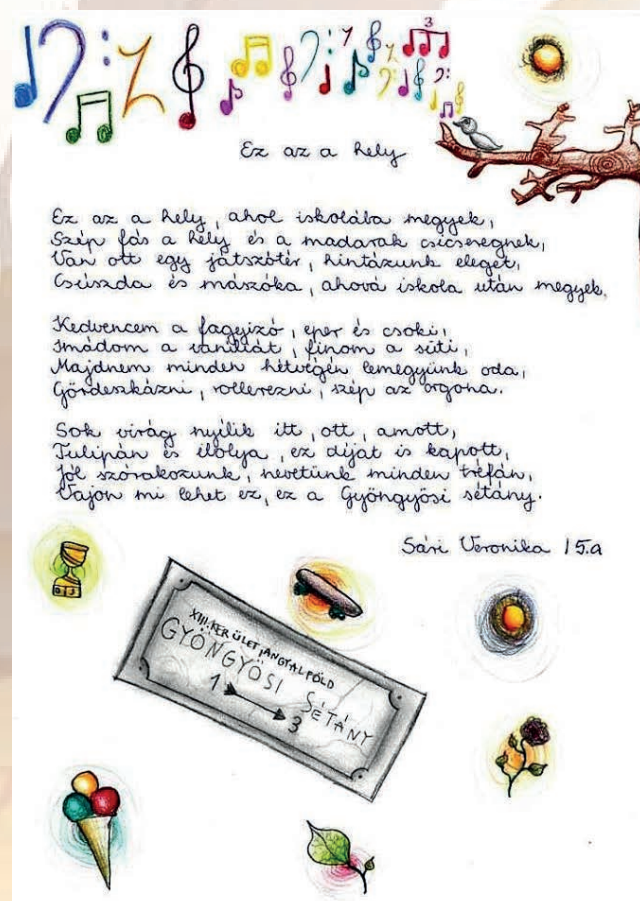 3
Ez az a hely
Ez az a hely, ahol iskolába megyek,
Szép fás a hely és a madarak csicseregnek,
Van ott egy játszótér, hintázunk eleget,
Csúszda és mászóka, ahová iskola után megyek.
Kedvencem a fagyizó, eper és csoki,
Imádom a vaníliát, finom a süti,
Majdnem minden hétvégén lemegyünk oda,
Gördeszkázni, rollerezni, szép az orgona.
Sok virág nyílik itt, ott, amott,
Tulipán és ibolya, ez díjat is kapott,
Jól szórakozunk, nevetünk minden tréfán,
Vajon mi lehet ez, ez a Gyöngyösi sétány.
Sári Veronika 15.a
XIII. KERÜLET, ANGYALFÖLD
GYÖNGYÖSI SÉTÁNY
1 3